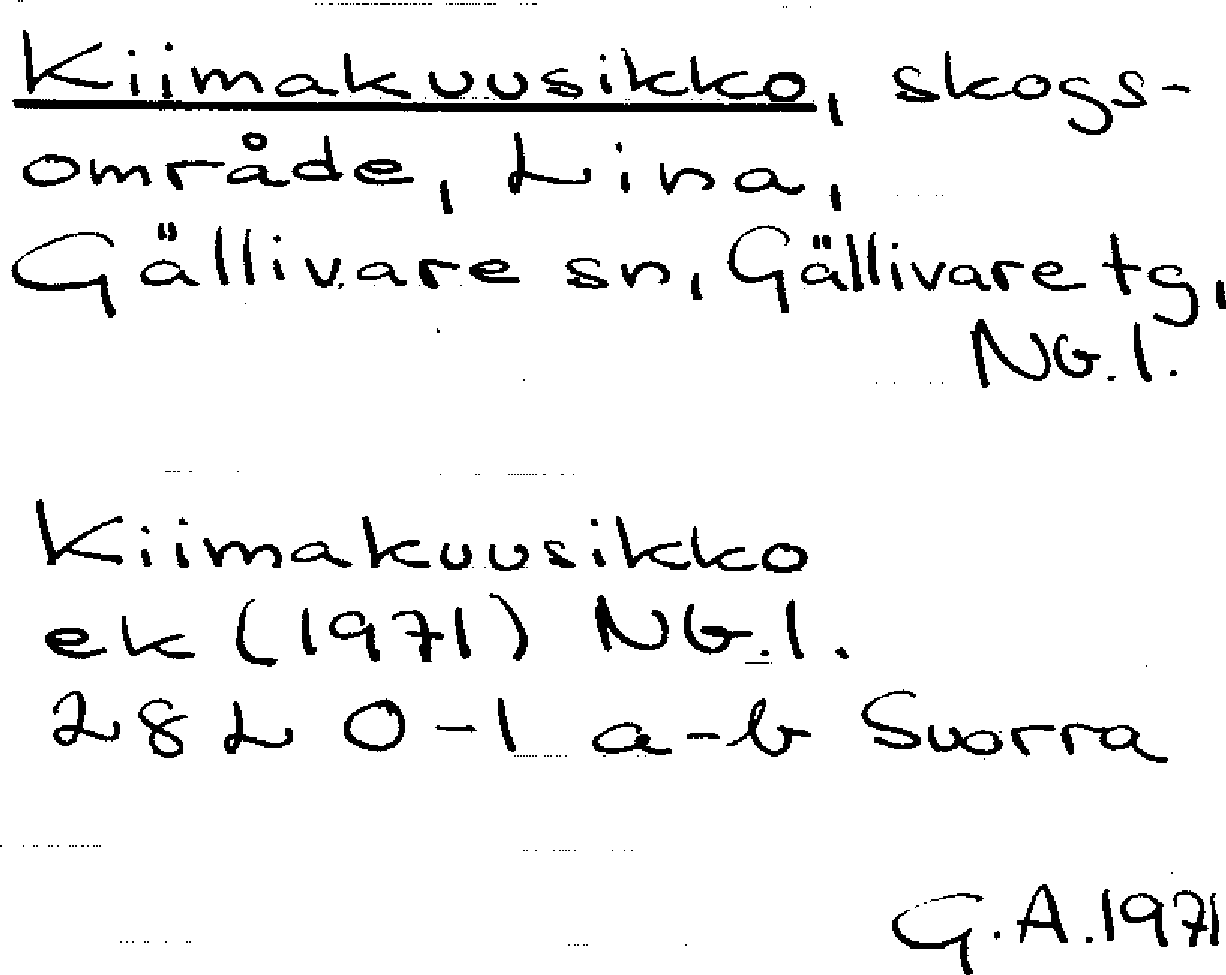 Kiimakuusikko, skogs-
område, Lina,
Gällivare sn, Gällivare tg,
NG.l.
Kiimakuusikko
ek (1971) NG.l.
28 L 0-1 a-b Suorra
G.A.1971